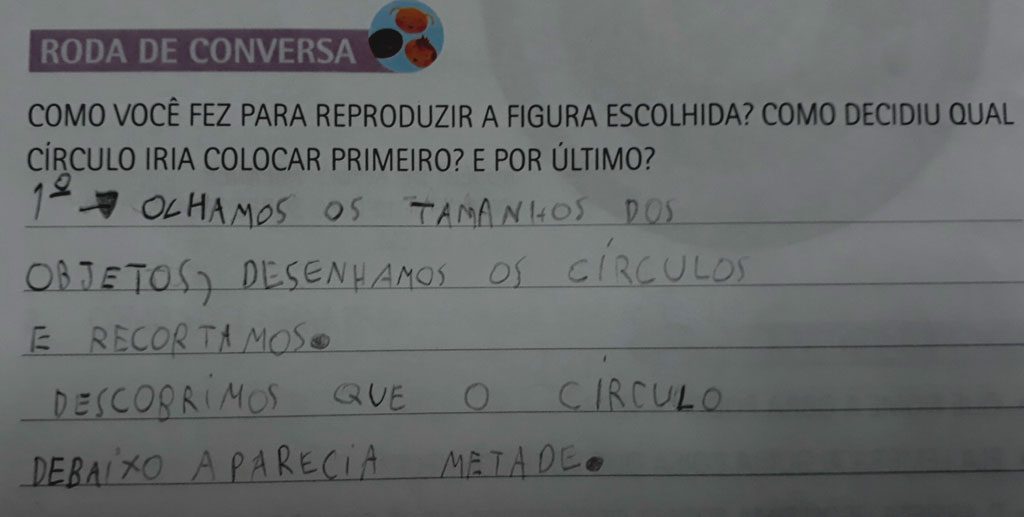 RODA DE CONVERSA
COMO VOCÊ FEZ PARA REPRODUZIR A FIGURA ESCOLHIDA? COMO DECIDIU QUAL
CÍRCULO IRIA COLOCAR PRIMEIRO? E POR ÚLTIMO?
1º → OLHAMOS OS TAMANHOS DOS
OBJETOS, DESENHAMOS OS CÍRCULOS
E RECORTAMOS.
DESCOBRIMOS QUE O CÍRCULO
DEBAIXO APARECIA METADE.